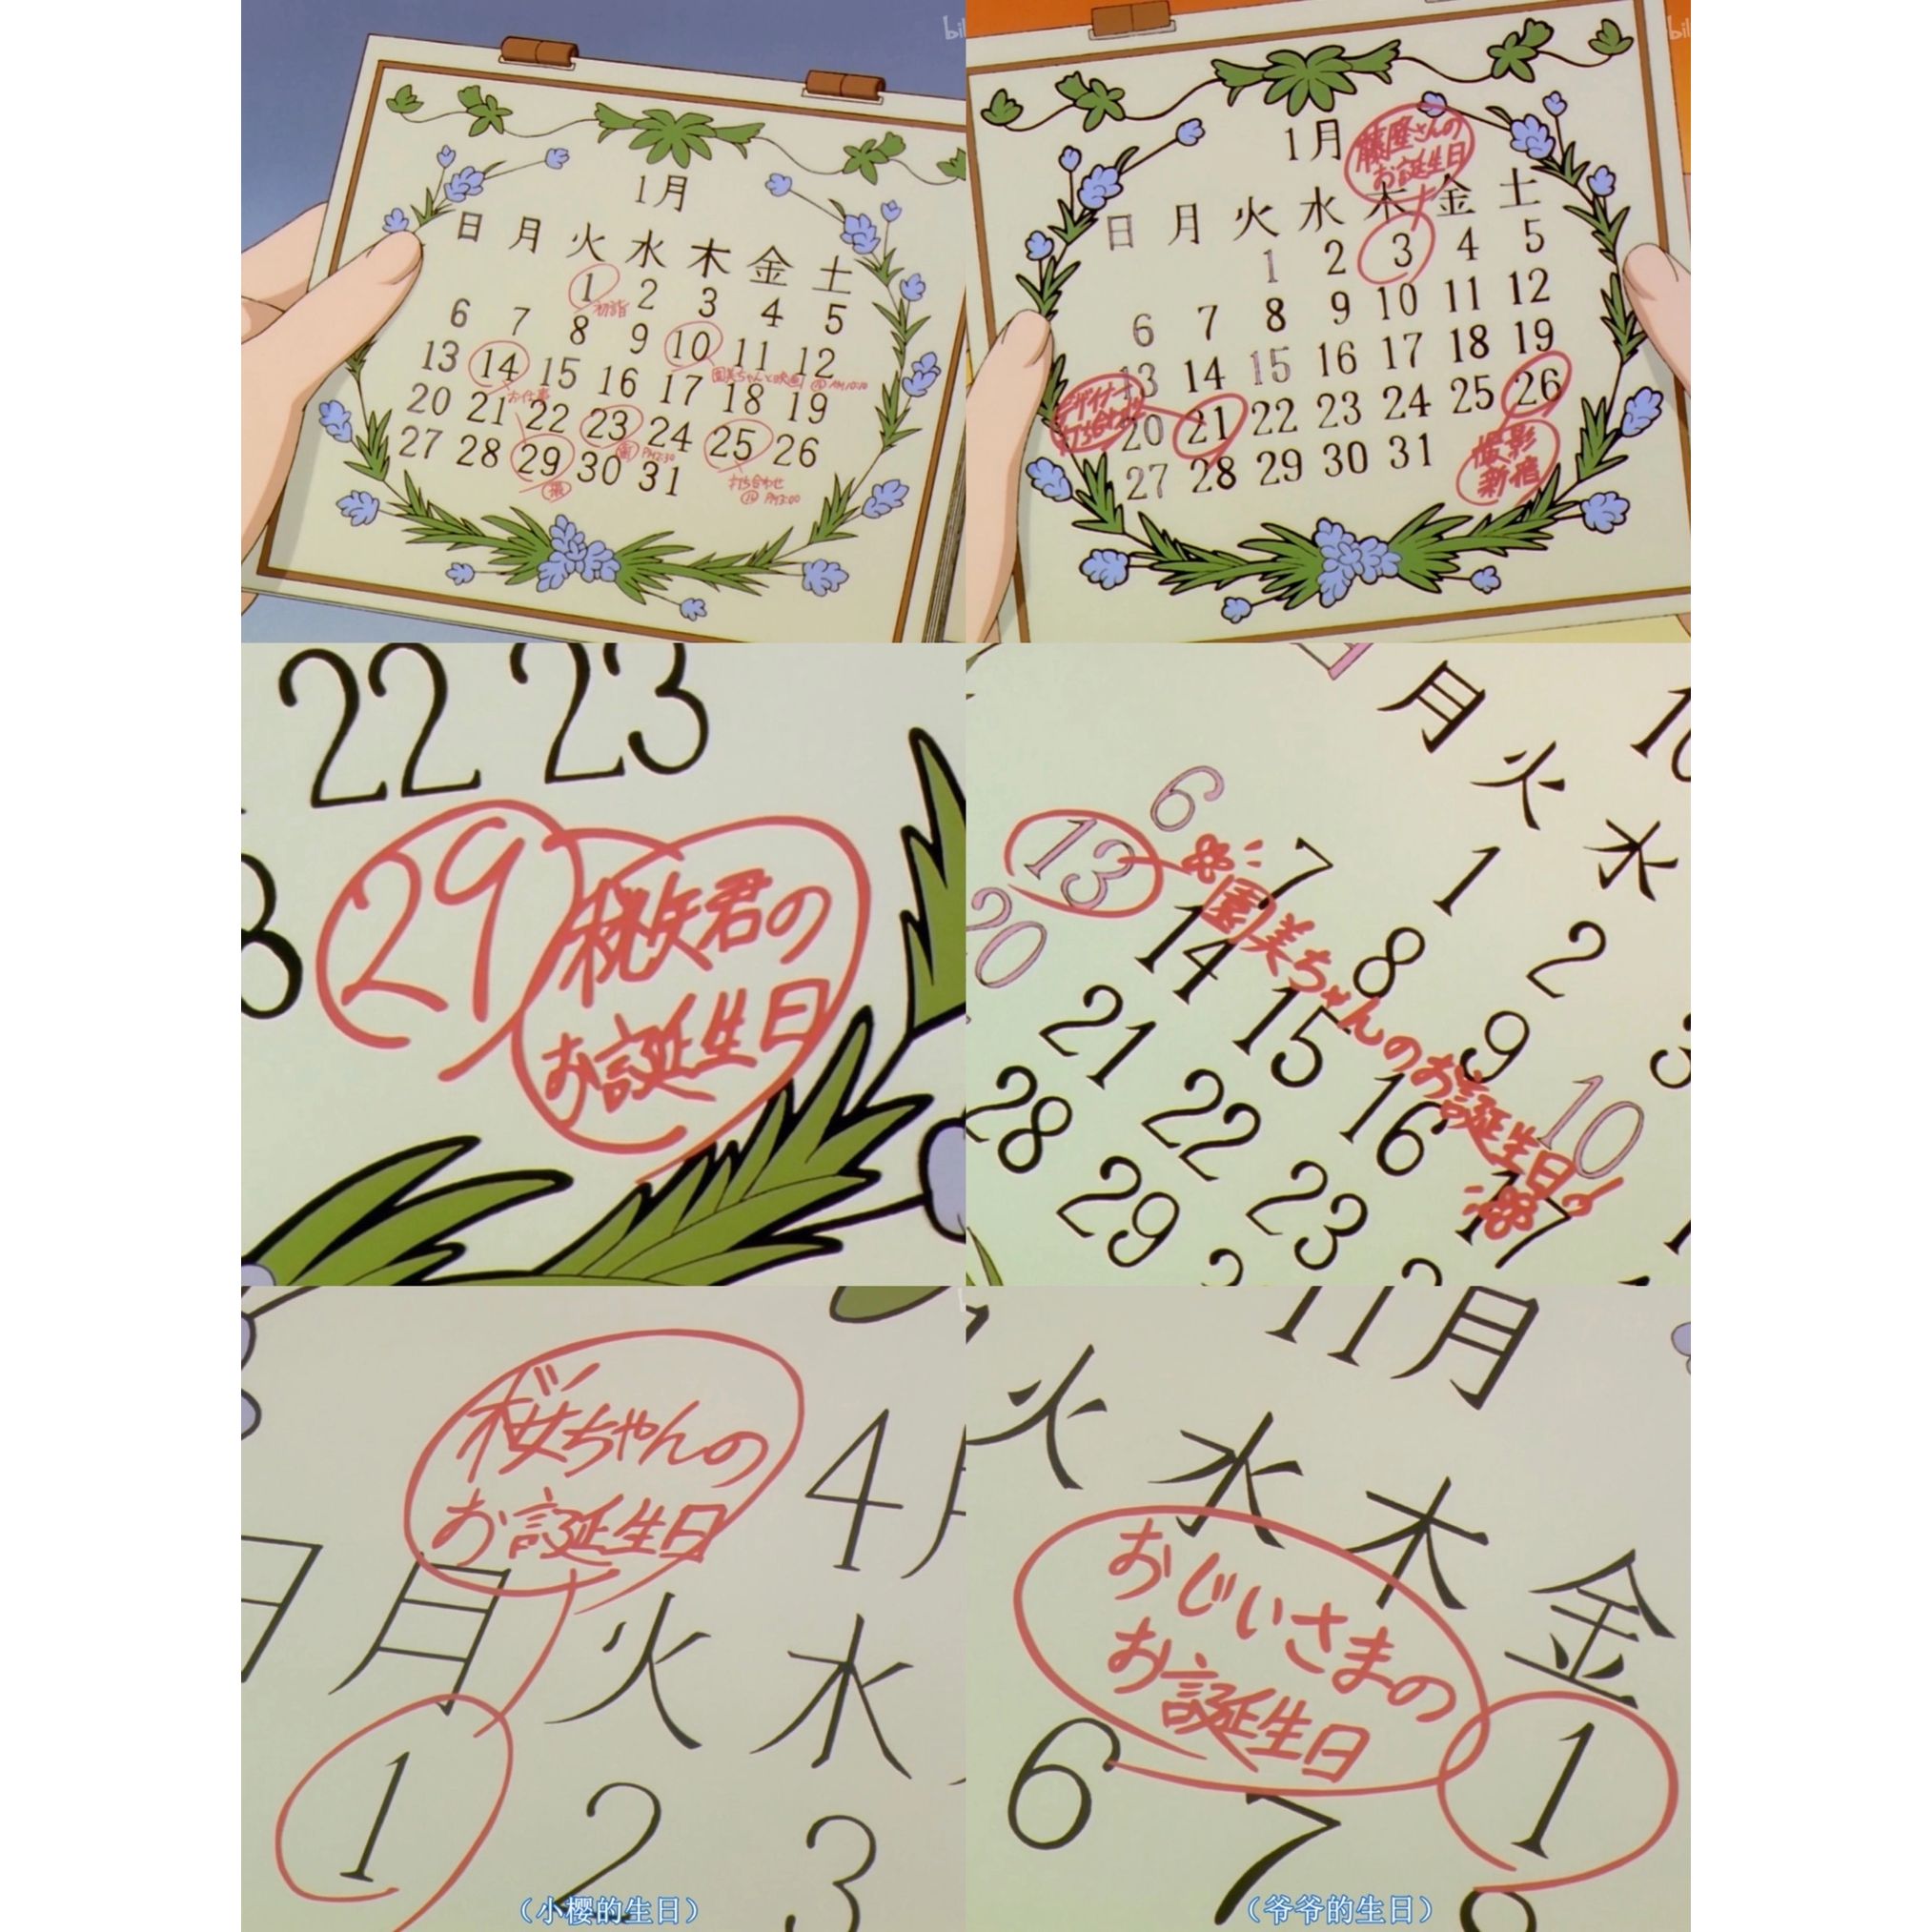 bil
1月
日 月 火 水 木 金 土
1 2 3 4 5
初詣
6 7 8 9 10 11 12
園美ちゃんと映画 AM10:30
13 14 15 16 17 18 19
お仕事
20 21 22 23 24 25 26
PM2:30
打ち合わせ
PM3:00
27 28 29 30 31
bil
1月
藤隆さんの
お誕生日
日 月 火 水 木 金 土
1 2 3 4 5
6 7 8 9 10 11 12
13 14 15 16 17 18 19
デザイナー
打ち合わせ
20 21 22 23 24 25 26
撮影
新宿
27 28 29 30 31
22 23
29
桃矢君の
お誕生日
月 火 水
6 7 1 2
13 14 8 9 10
20 21 15 16 17
28 22 23
29
園美ちゃんのお誕生日
桜ちゃんの
お誕生日
4月
日 月 火 水
1 2 3
(小樱的生日)
11月
火 水 木 金
おじいさまの
お誕生日
1
6 7 8
(爷爷的生日)